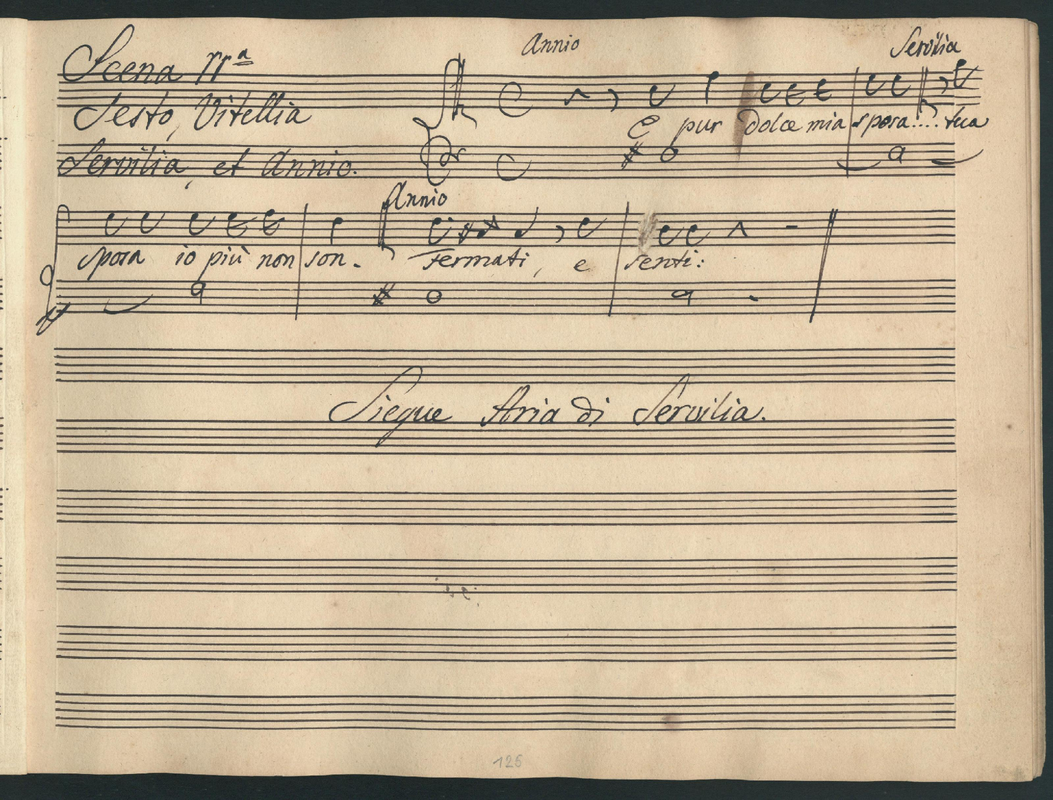 Annio Servilia
Scena 11ª
Sesto, Vitellia
E pur dolce mia sposa.... tua
Servilia, et Annio.
Annio
sposa io più non son. Fermati, e senti:
Siegue Aria di Servilia.
125